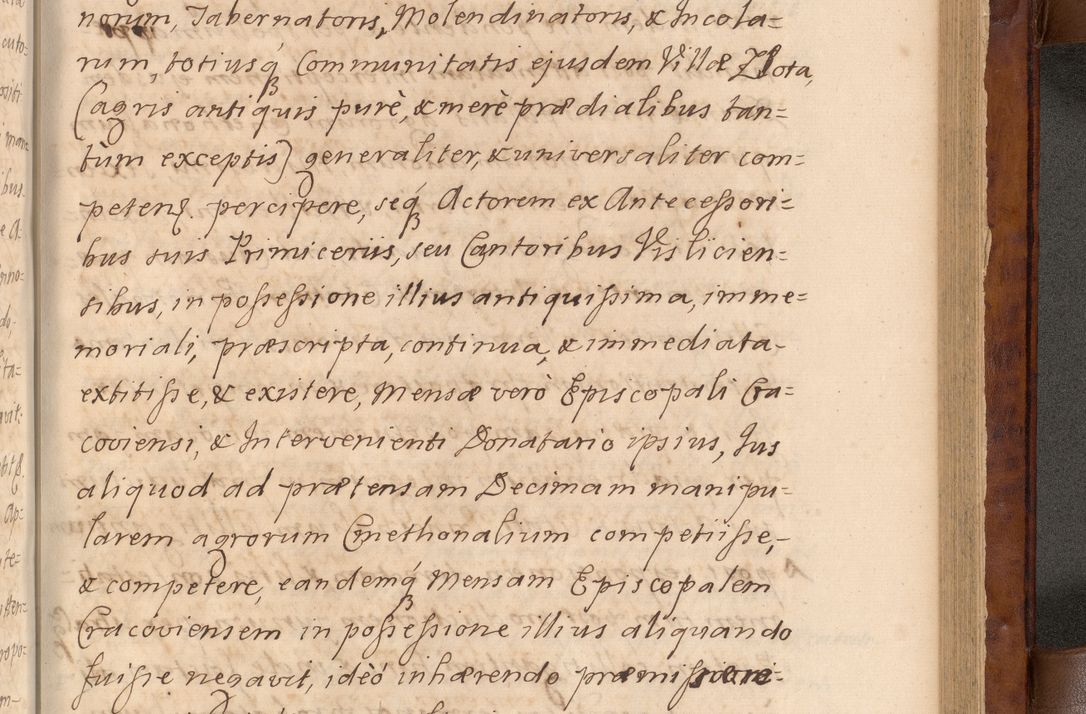 norum, Tabernatoris, Molendinatoris, & Incola=
rum, totiusq́ Communitatis ejusdem Villæ Zlota,
(agris antiquis purè, & merè prædialibus tan=
tùm exceptis) generaliter, & universaliter com=
peten. percipere, seq́ Actorem ex Antecessori=
bus suis Primiceriis, seu Cantoribus Vislicien=
sibus, in possessione illius antiquissima, imme=
moriali, præscripta, continua, & immediata
extitisse, & existere, Mensæ verò Episcopali Cra=
coviensi, & Intervenienti Donatario ipsius, Jus
aliquod ad prætensam Decimam manipu=
larem agrorum Cmethonalium competiisse,
& competere, eandemq́ Mensam Episcopalem
Cracoviensem in possessione illius aliquando
fuisse negavit, ideò inhærendo